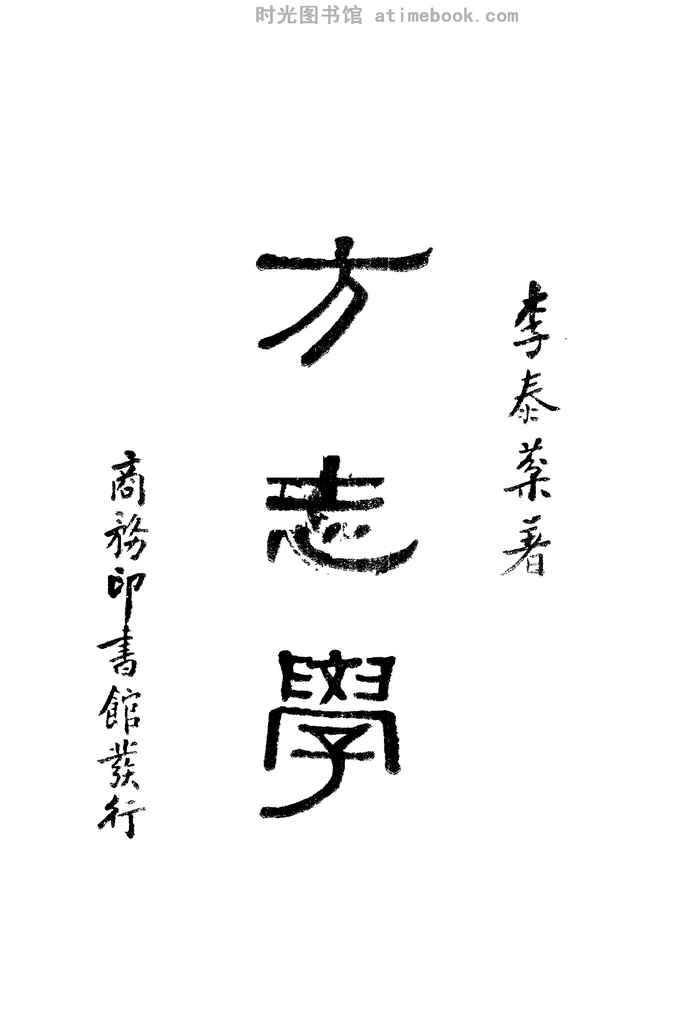 时光图书馆 atimebook.com
李泰棻著
方志學
商務印書館發行